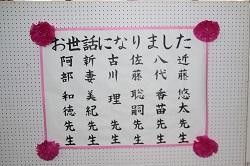 お世話になりました
近藤 悠太 先生
八代 香苗 先生
佐藤 聡嗣 先生
古川 理 先生
新妻 美紀 先生
阿部 和徳 先生